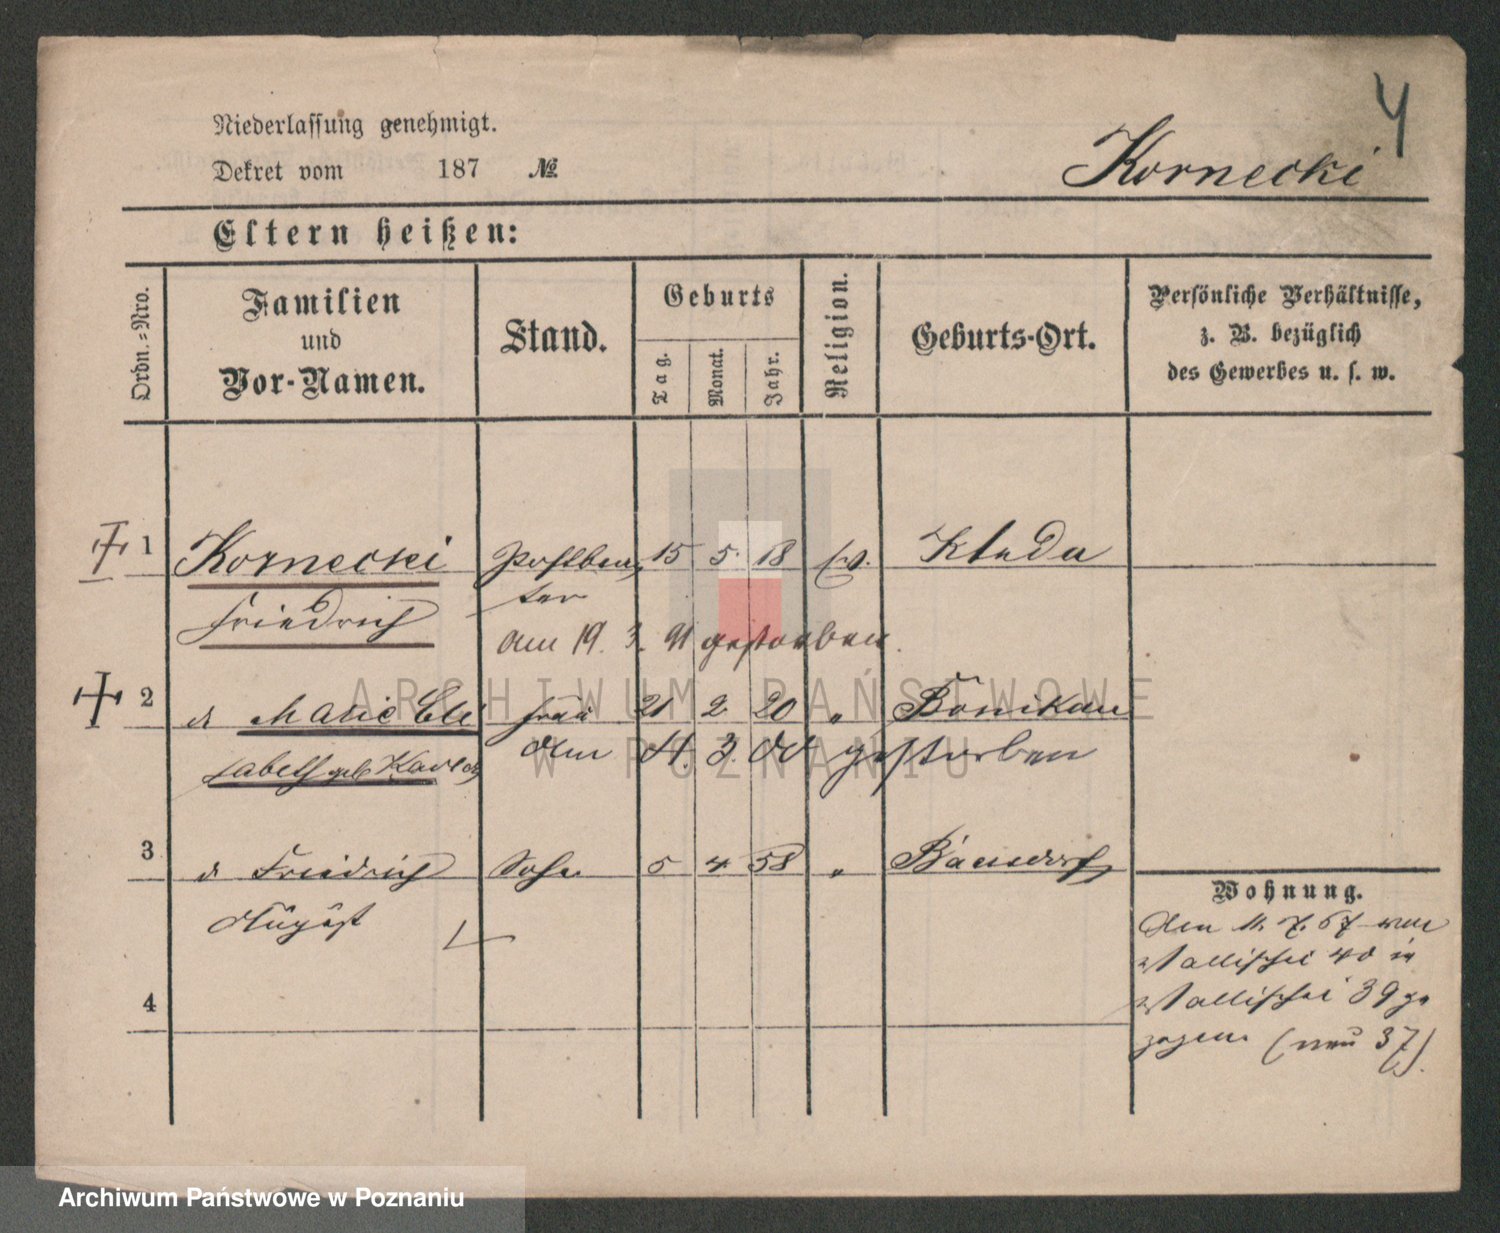 4
Niederlassung genehmigt.
Dekret vom 187 №
Kornecki
Eltern heißen:
Ordn.=Nro.
Familien
und
Vor-Namen.
Stand.
Geburts
Tag.
Monat.
Jahr.
Religion.
Geburts-Ort.
Persönliche Verhältnisse,
z. B. bezüglich
des Gewerbes u. s. w.
1 Kornecki 15 5. 18 Kleda
Friedrich
am 19. 3. 91 gestorben.
2 Marie Eli Frau 21 2 20 "
sabeth geb. gestorben
3 Friedrich Sohn 5 4. 58 "
August
4
Wohnung.
Am 11. 7. 67 von
Wallischei 40 in
Wallischei 39 ge
zogen. (neu 37).
ARCHIWUM PAŃSTWOWE
W POZNANIU
Archiwum Państwowe w Poznaniu